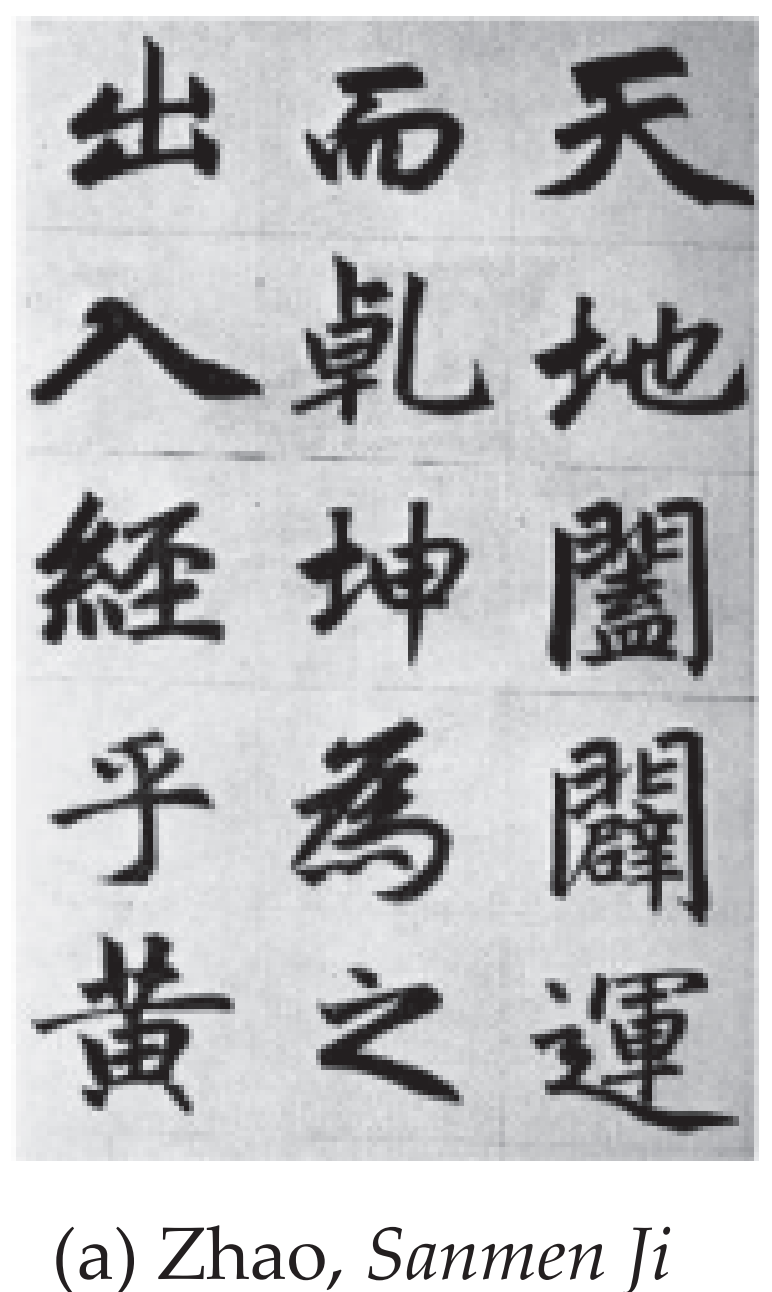 天地闔闢運
而乹坤為之
出入經乎黄
(a) Zhao, Sanmen Ji